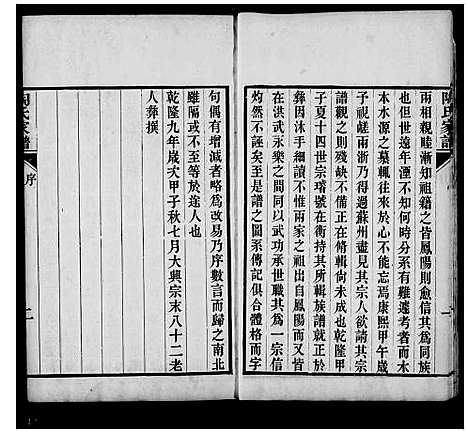 陶氏家譜
雨相親睦漸知祖籍之皆鳳陽則愈信其為同族
也但世遠年湮不知何時分系有難遽考者而木
本水源之墓輒往來於心不能忘焉康熙甲午歲
予視鹺兩浙乃得過蘇州盡見其宗人欲請其宗
譜觀之則殘缺不備正在修輯尚未成也乾隆甲
子夏十四世宗瑃號在衡持其所輯族譜就正於
彝因沐手細讀不惟兩家之祖出自鳳陽而又皆
在洪武永樂之間同以武功承世職其為一宗信
灼然不誣矣至是譜之圖系傳記俱合體格而字
句偶有增減者略為改易乃序數言而歸之南北
雖隔或不至等於途人也
乾隆九年歲次甲子秋七月大興宗末八十二老
人彝撰
陶氏家譜
序
二